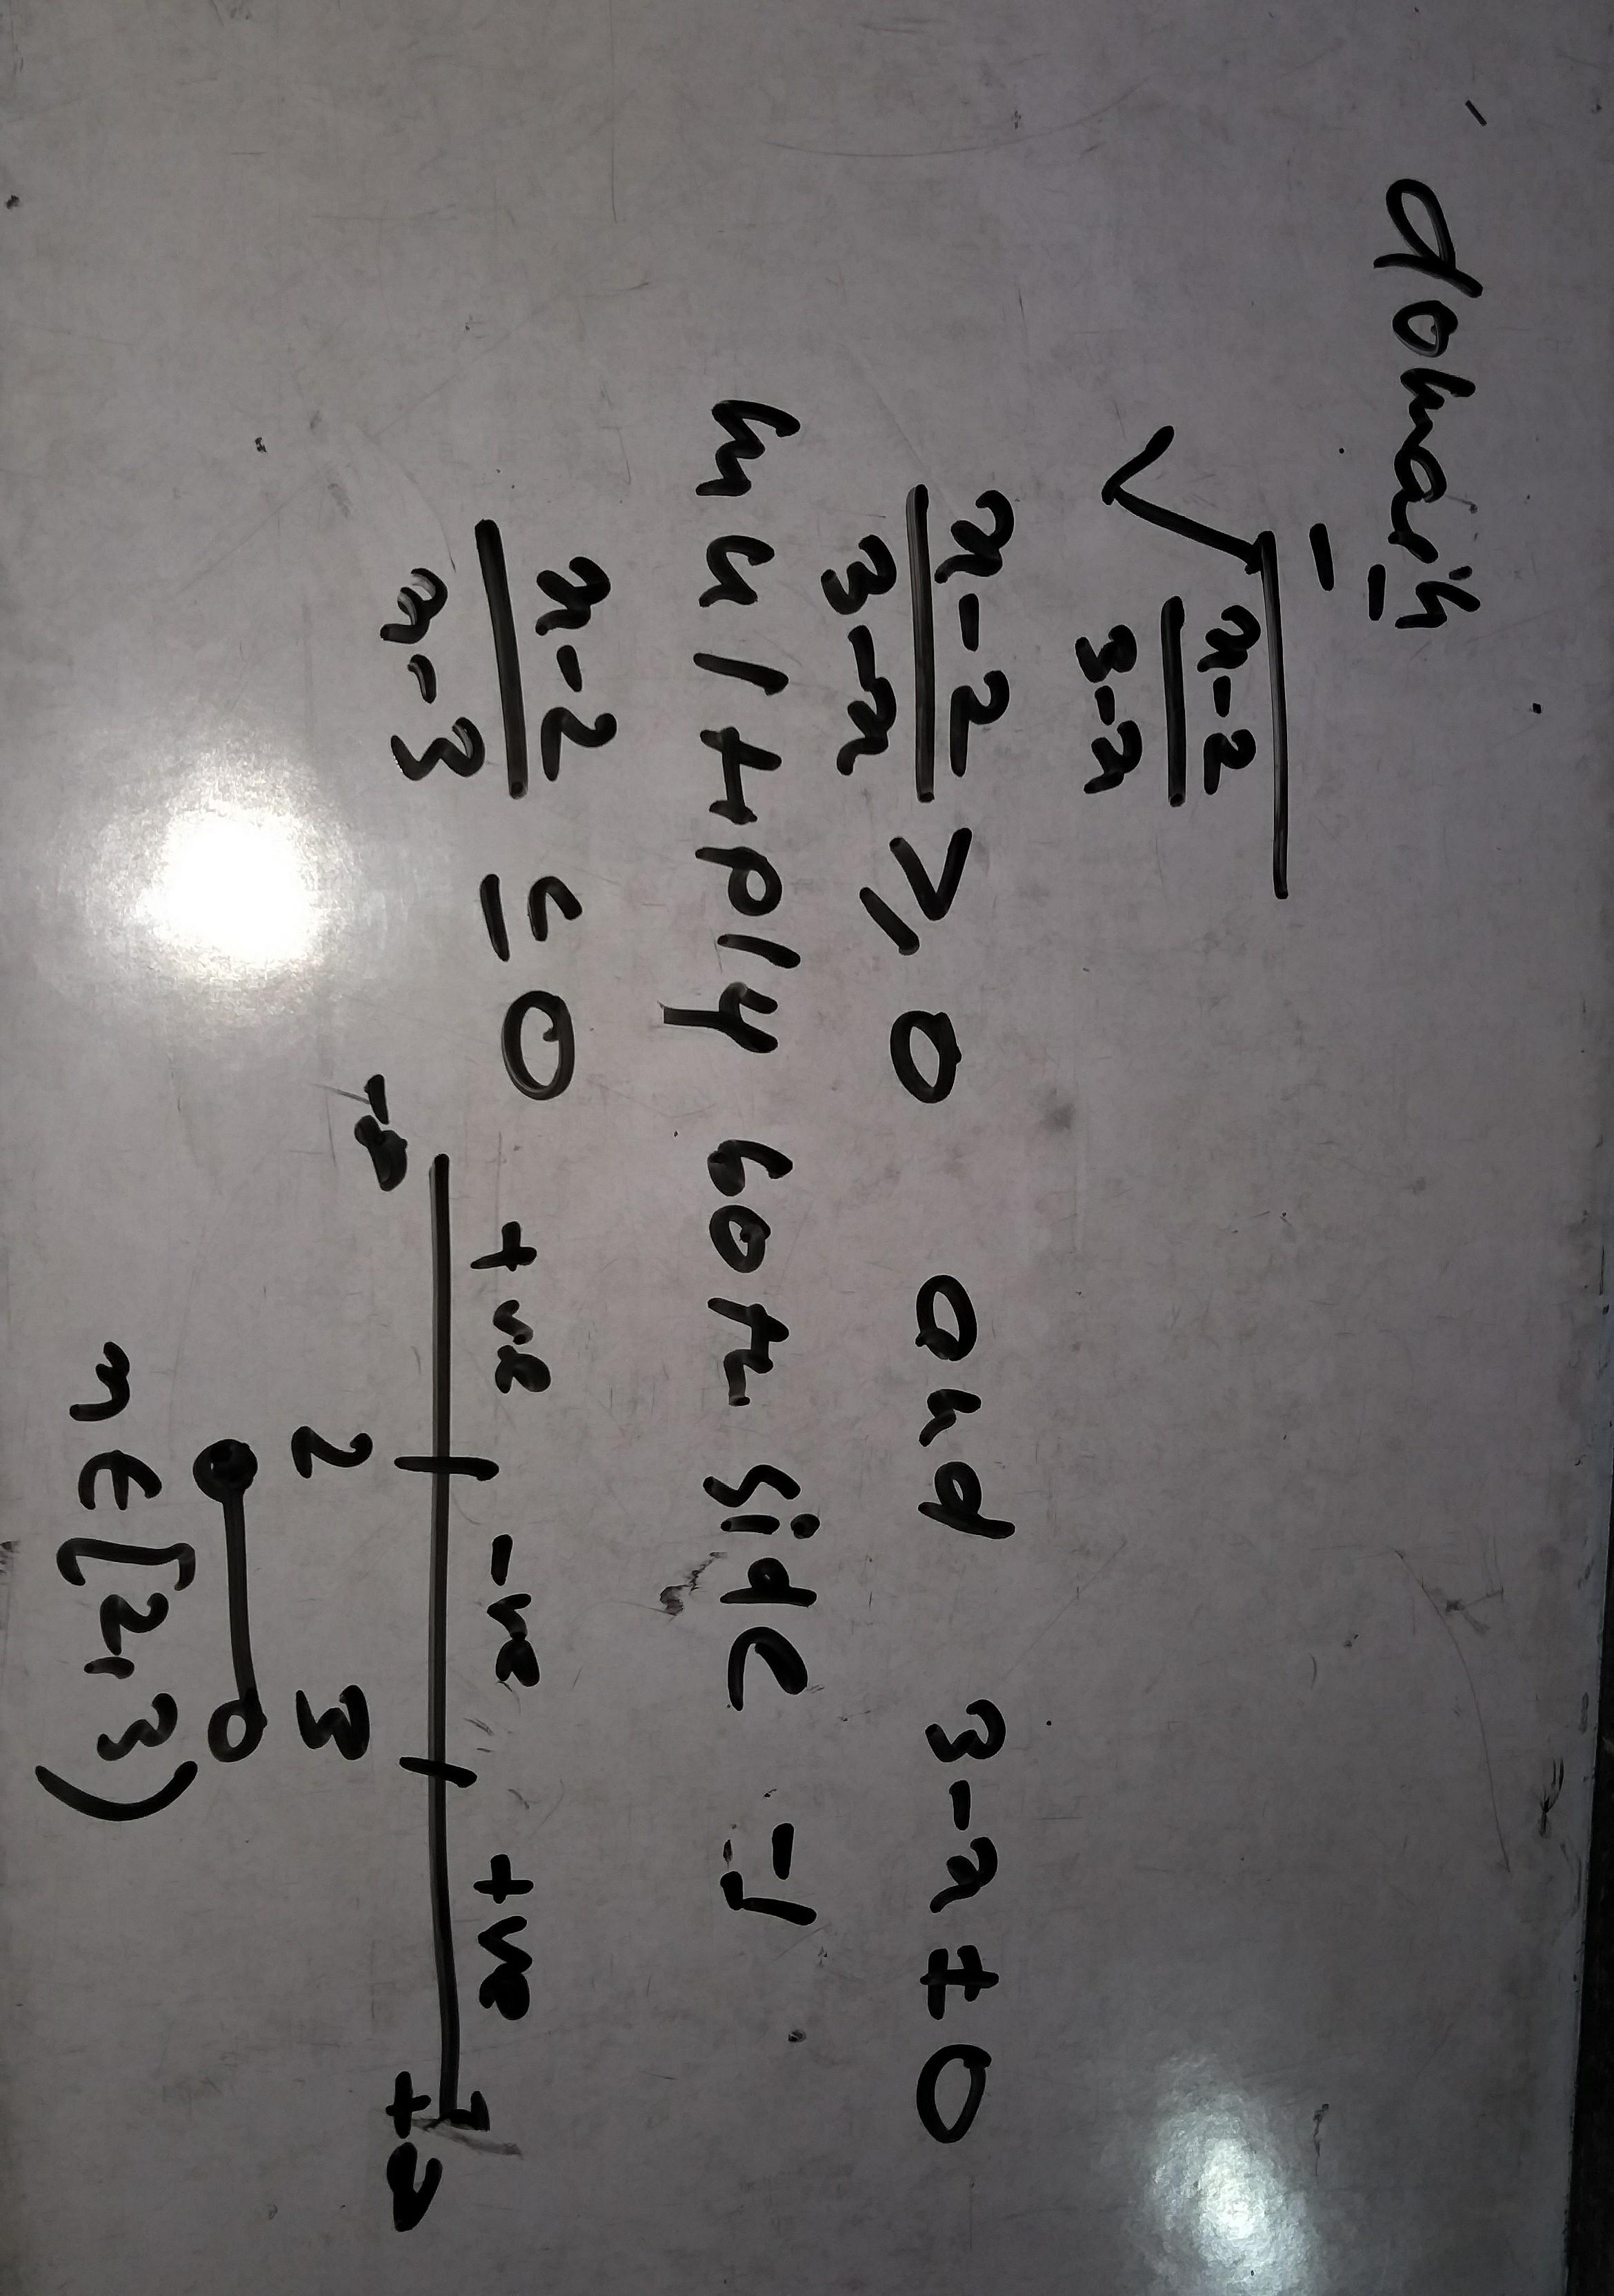 domain :-
√(x-2/3-x)
x-2/3-x ≥ 0 and 3-x ≠ 0
multiply both side -1
x-2/x-3 ≤ 0
+ve -ve +ve
-∞ 2 3 +∞
x ∈ [2,3)